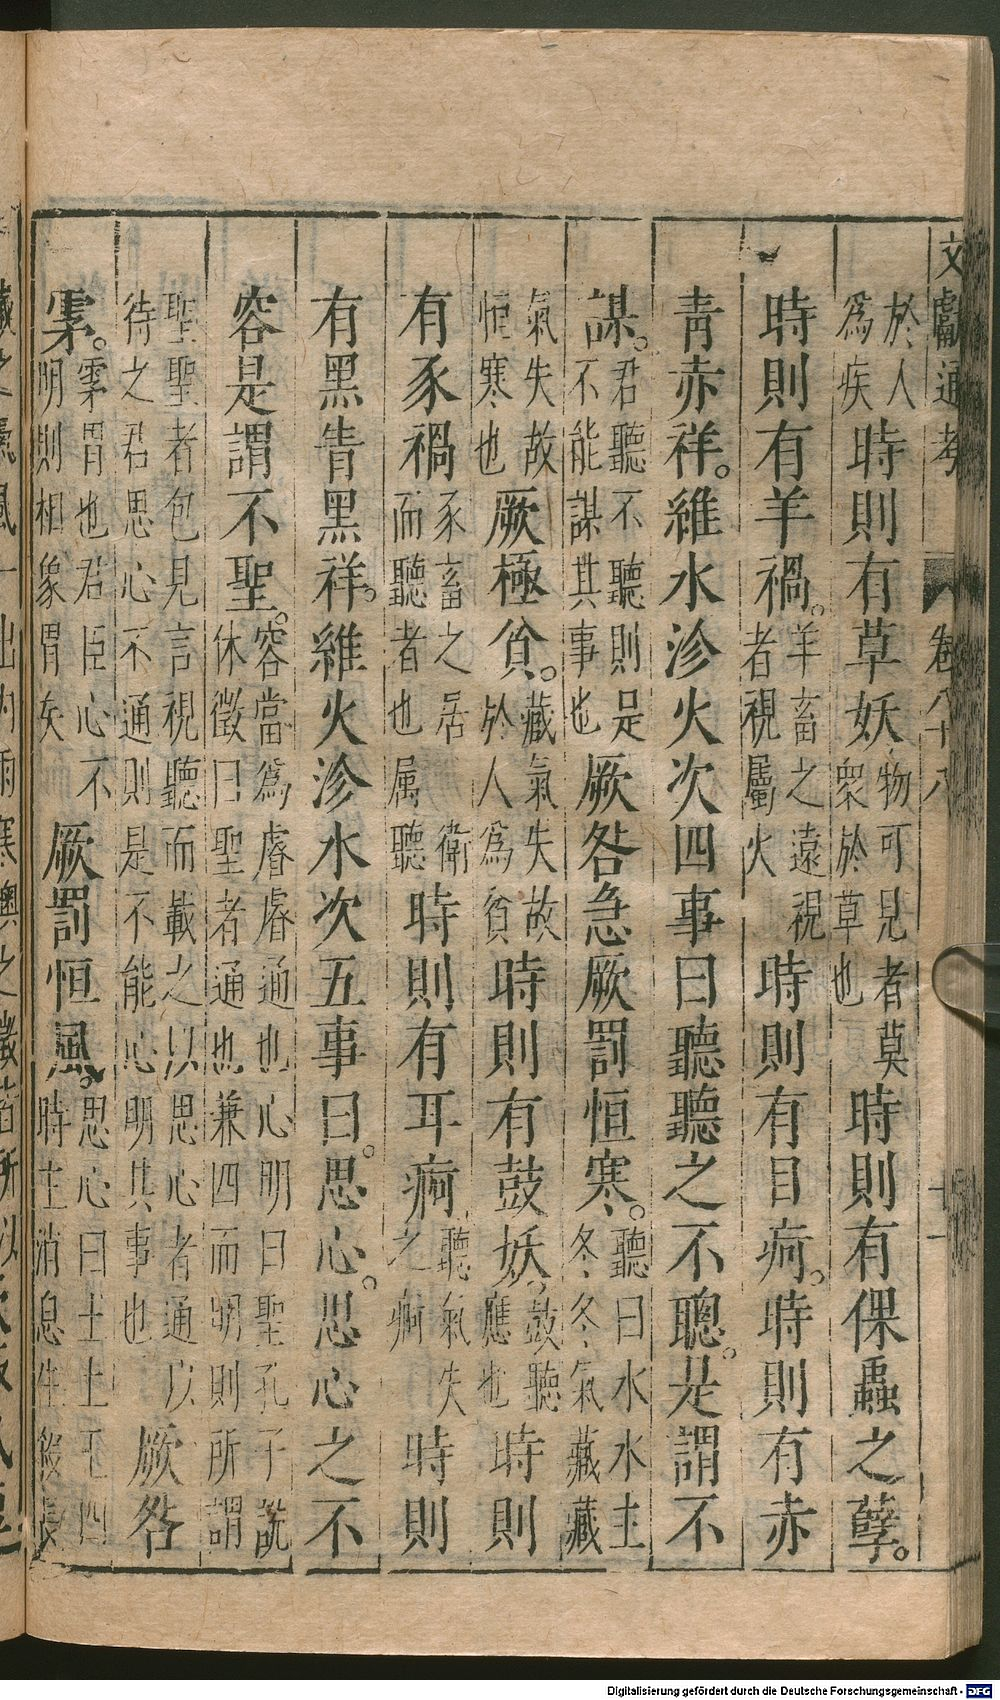 文獻通考 卷八十八 十一
於人爲疾時則有草妖物可見者莫衆於草也時則有倮蟲之孽。
時則有羊禍。羊畜之遠視者視屬火時則有目痾。時則有赤
青赤祥。維水沴火次四事曰聽聽之不聰。是謂不
謀。君聽不聽則是不能謀其事也厥咎急厥罰恒寒。聽曰水水主冬冬氣藏藏
氣失故恒寒也厥極貧。藏氣失故於人爲貧時則有鼓妖。鼓聽應也時則
有豕禍豕畜之居衛而聽者也属聽時則有耳痾聽氣失之痾時則
有黑眚黑祥。維火沴水次五事曰。思心。思心之不
容是謂不聖。容當爲睿睿通也心明曰聖孔子説休徵曰聖者通也兼四而明則所謂
聖聖者包見言視聽而載之以思心者通以待之君思心不通則是不能心明其事也厥咎
霿。霿冒也君臣心不明則相象冒矣厥罰恒風。思心曰土土王四時主消息生殺長
Digitalisierung gefördert durch die Deutsche Forschungsgemeinschaft - DFG